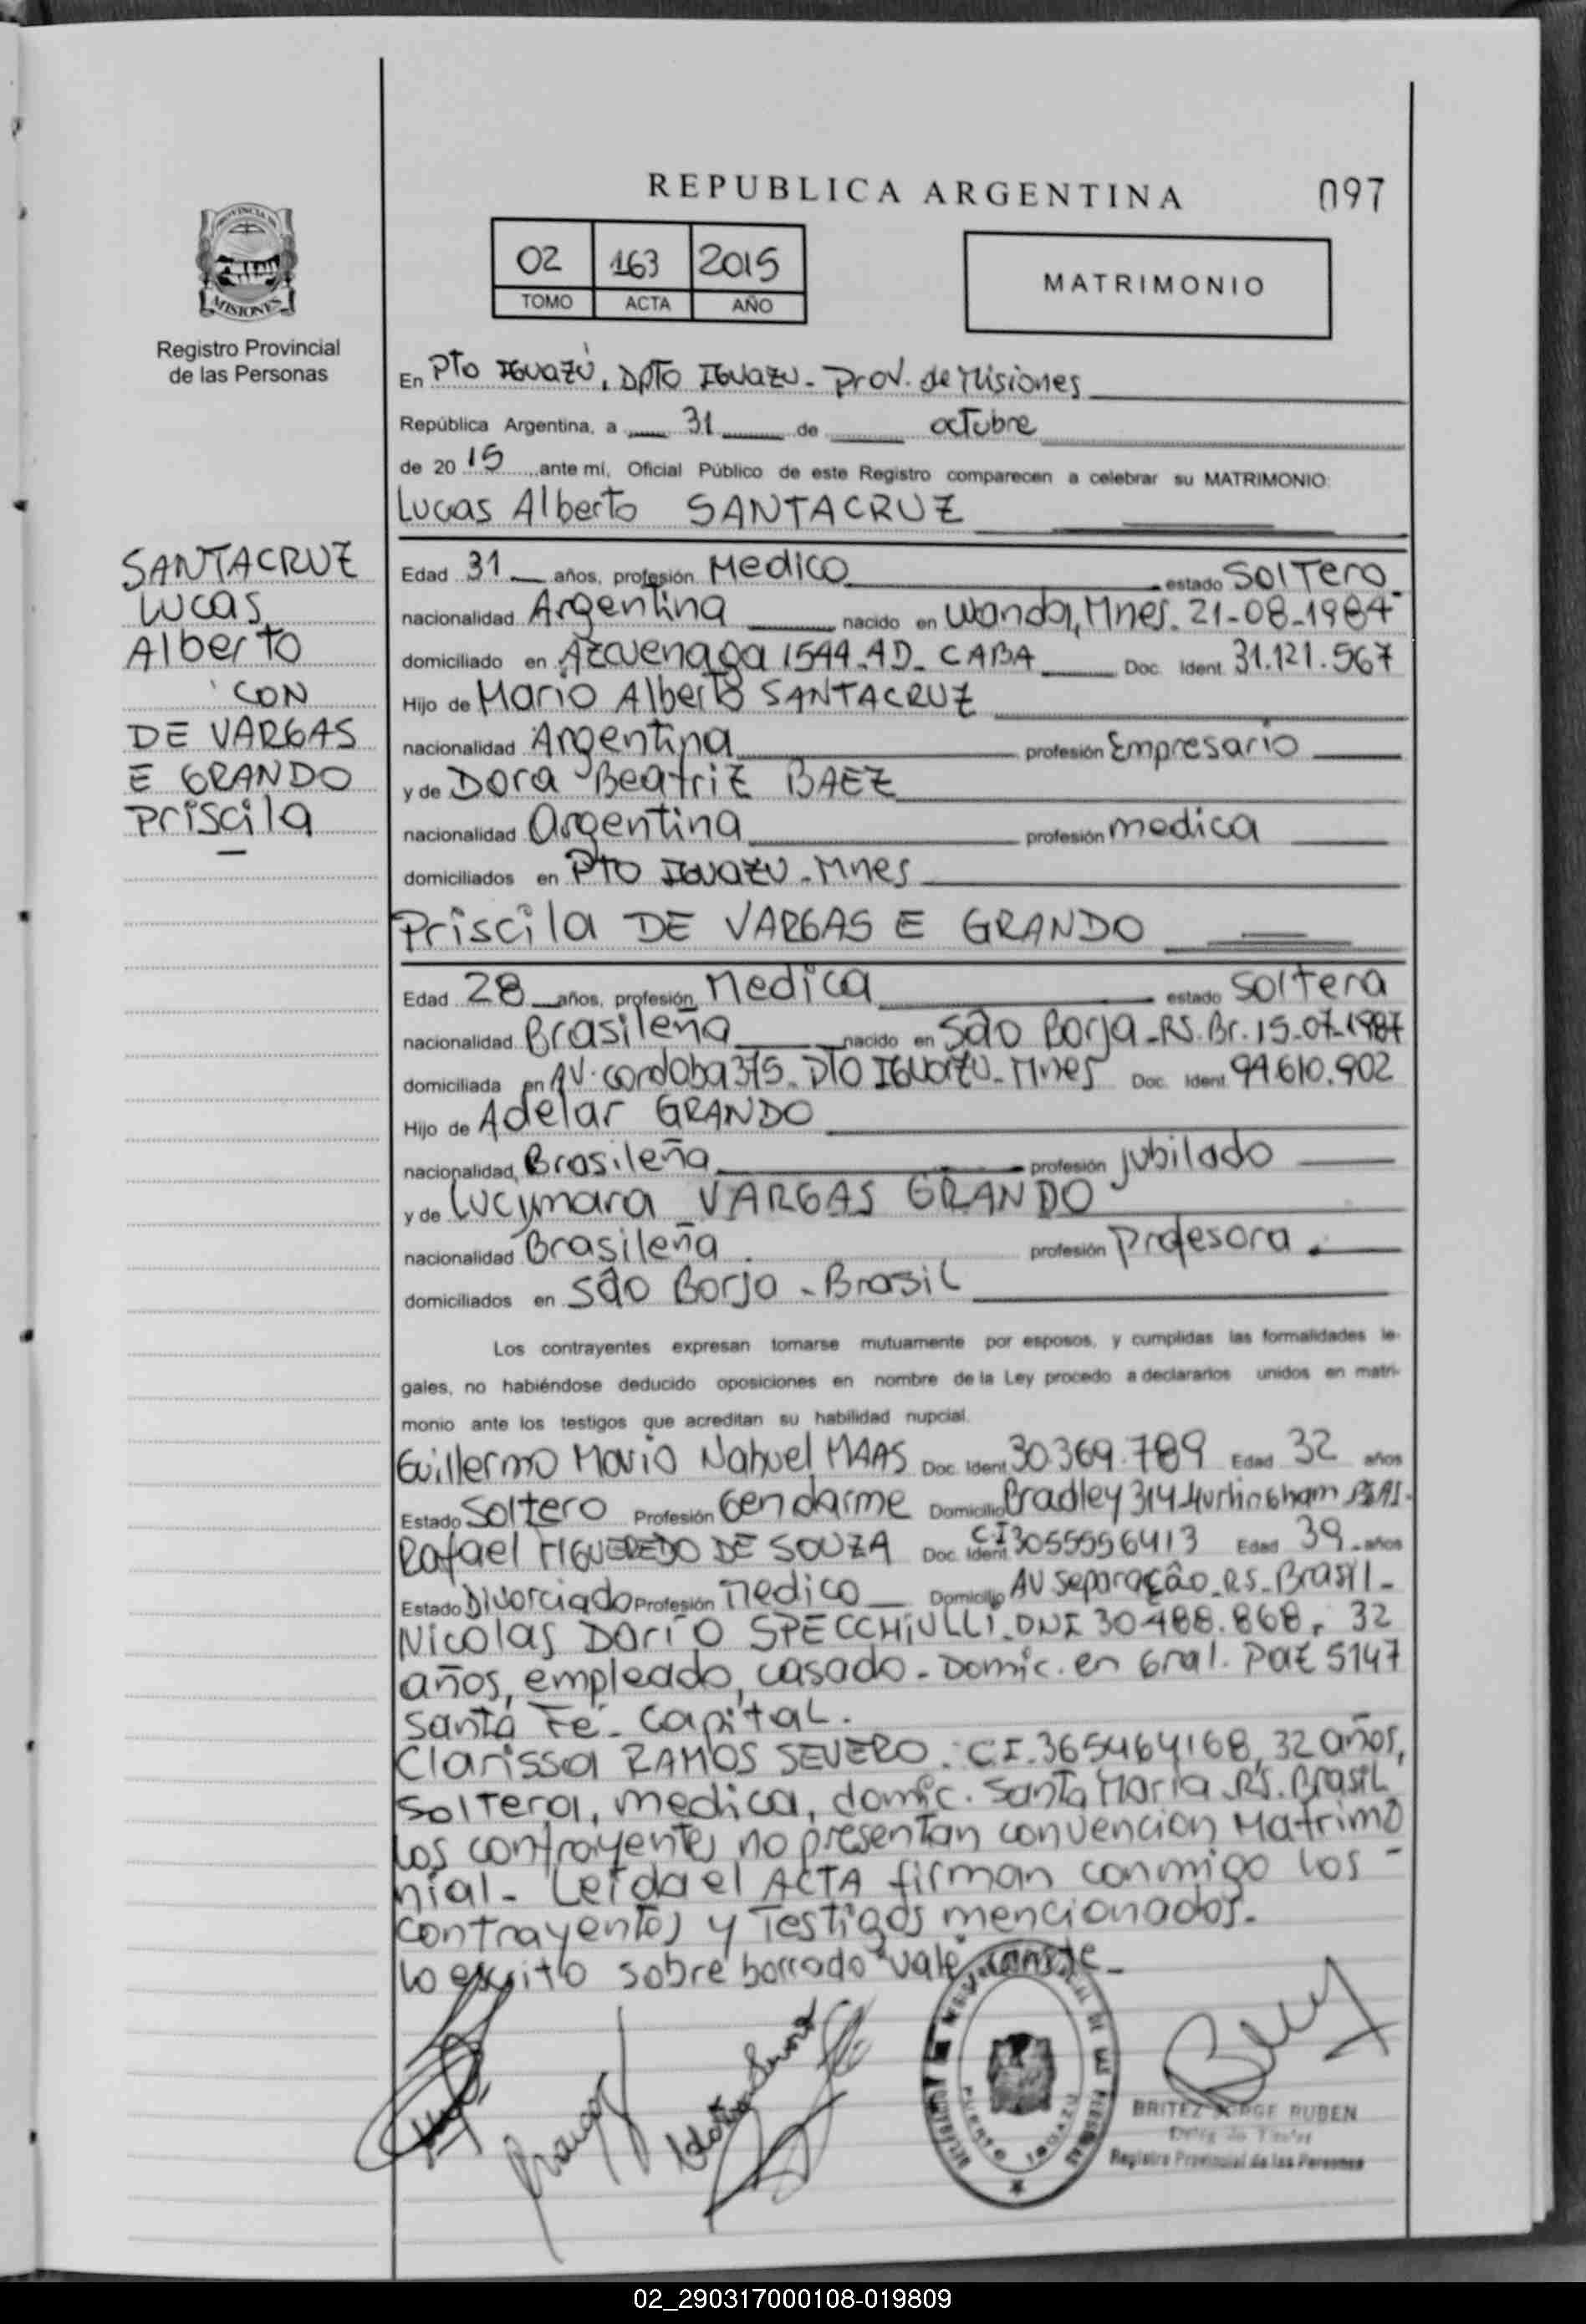 REPUBLICA ARGENTINA
097
02 163 2015
TOMO ACTA AÑO
MATRIMONIO
MISIONES
Registro Provincial
de las Personas
En Pto IGUAZÚ, DPTO IGUAZU - Prov. de Misiones
República Argentina, a 31 de octubre
de 2015 ante mí, Oficial Público de este Registro comparecen a celebrar su MATRIMONIO:
Lucas Alberto SANTACRUZ
SANTACRUZ
Lucas
Alberto
CON
DE VARGAS
E GRANDO
Priscila
Edad 31 años, profesión Medico estado SOLTero
nacionalidad Argentina nacido en Wanda, Mnes. 21-08-1984
domiciliado en Azcuenaga 1544-4D- CABA Doc. Ident. 31.121.567
Hijo de Mario Alberto SANTACRUZ
nacionalidad Argentina profesión Empresario
y de Dora Beatriz BAEZ
nacionalidad Argentina profesión medica
domiciliados en PTO IGUAZU - Mnes
Priscila DE VARGAS E GRANDO
Edad 28 años, profesión Medica estado SOLTera
nacionalidad Brasileña nacido en São Borja - RS. Br. 15-07-1987
domiciliada en AV. cordoba 375 - PTO IGUAZU - Mnes Doc. Ident. 94.610.902
Hijo de Adelar GRANDO
nacionalidad Brasileña profesión jubilado
y de Lucymara VARGAS GRANDO
nacionalidad Brasileña profesión Profesora.
domiciliados en São Borja - Brasil
Los contrayentes expresan tomarse mutuamente por esposos, y cumplidas las formalidades le-
gales, no habiéndose deducido oposiciones en nombre de la Ley procedo a declararlos unidos en matri-
monio ante los testigos que acreditan su habilidad nupcial.
Guillermo Mario Nahuel MAAS Doc. Ident. 30.369.789 Edad 32 años
Estado Soltero Profesión Gendarme Domicilio Bradley 314 Hurlingham BsAs.
Rafael FIGUEREDO DE SOUZA Doc. Ident. CI 3055556413 Edad 39 años
Estado Divorciado Profesión Medico Domicilio AV Separação - RS - Brasil -
Nicolas Darío SPECCHiULLi - DNI 30.488.868, 32
años, empleado, casado - Domic. en Gral. Paz 5147
Santa Fé - Capital.
Clarissa RAMOS SEVERO. CI. 365464168, 32 años,
soltera, medica, domic. Santa Maria - RS. Brasil
Los contrayentes no presentan convencion Matrimo
nial - Leida el ACTA firman conmigo los -
contrayentes y Testigos mencionados.
Lo escrito sobre borrado "vale" conste -
PUERTO IGUAZU
BRITEZ JORGE RUBEN
Registro Provincial de las Personas
02_290317000108-019809